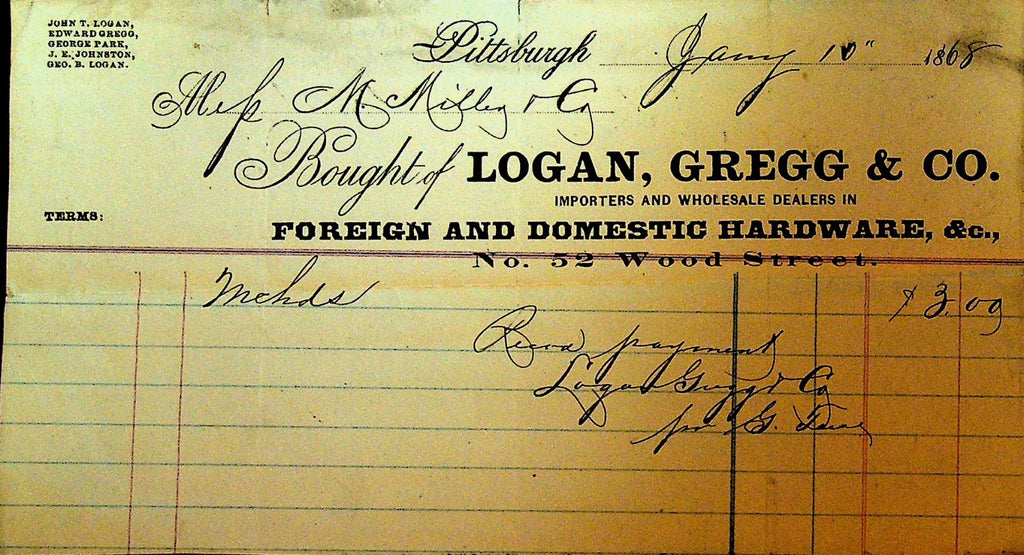 JOHN T. LOGAN,
EDWARD GREGG,
GEORGE PARK,
J. E. JOHNSTON,
GEO. B. LOGAN.
Pittsburgh Jany 10" 1868
Mess M. & Co
Bought of LOGAN, GREGG & CO.
IMPORTERS AND WHOLESALE DEALERS IN
TERMS:
FOREIGN AND DOMESTIC HARDWARE, &c.,
No. 52 Wood Street.
Mchds $3.09
Recd payment
Logan Gregg & Co
per G.